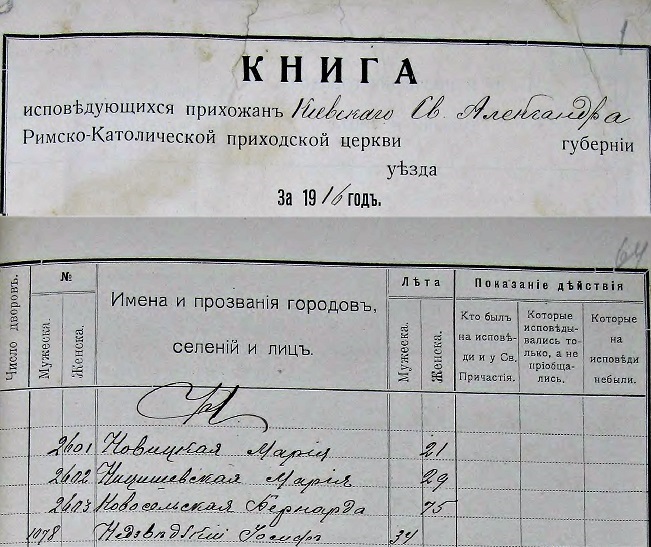 1
КНИГА
исповѣдующихся прихожанъ Кіевскаго Св. Александра
Римско-Католической приходской церкви губерніи
уѣзда
За 1916 годъ.
64
Число дворовъ.
№
Мужеска.
Женска.
Имена и прозванія городовъ,
селеній и лицъ.
Лѣта
Мужеска.
Женска.
Показаніе дѣйствія
Кто былъ
на исповѣ-
ди и у Св.
Причастія.
Которые
исповѣды-
вались то-
лько, а не
пріобща-
лись.
Которые
на
исповѣди
небыли.
Н
2601 Новицкая Марія 21
2602 Марія 29
2603 Новосельская Бернарда 75
1078 Іосифъ 34